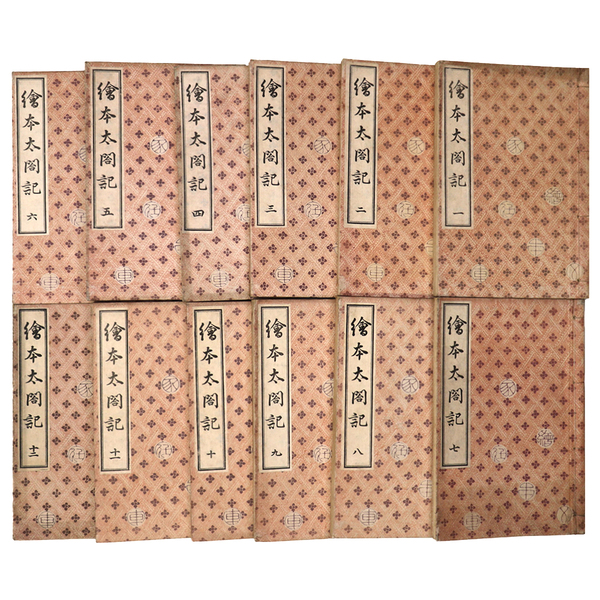 繪本太閤記 一
繪本太閤記 二
繪本太閤記 三
繪本太閤記 四
繪本太閤記 五
繪本太閤記 六
繪本太閤記 七
繪本太閤記 八
繪本太閤記 九
繪本太閤記 十
繪本太閤記 十一
繪本太閤記 十二